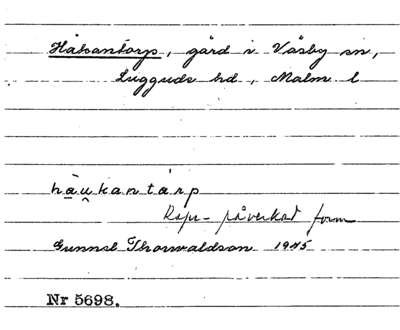 Håkantorp, gård i Väsby sn,
Luggude hd, Malm l
hàu̯kantàrp
Rspr-påverkad form
Gunnel Thorwaldson 1945
Nr 5698.